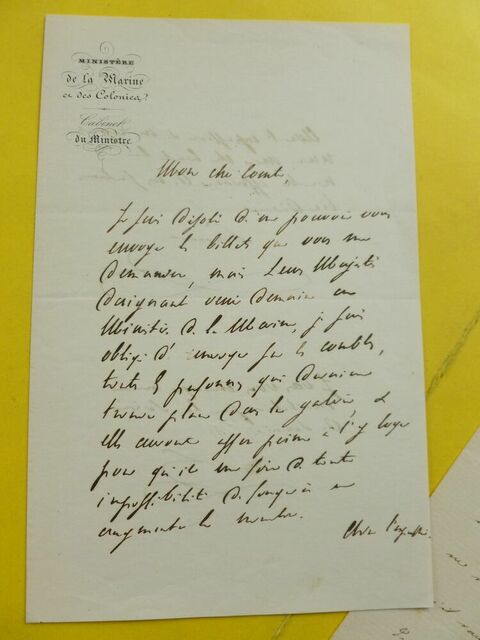 MINISTÈRE
de la Marine
et des Colonies.
Cabinet
du Ministre.
Mon cher Comte,
Je suis désolé de ne pouvoir vous
envoyer les billets que vous me
demandez, mais Leurs Majestés
daignant venir demain au
Ministère de la Marine, je suis
obligé d'envoyer sur les combles,
toutes les personnes qui devaient
trouver place dans la galerie &
elles auront assez peine à s'y loger
pour qu'il me soit de toute
impossibilité de songer à en
augmenter le nombre.